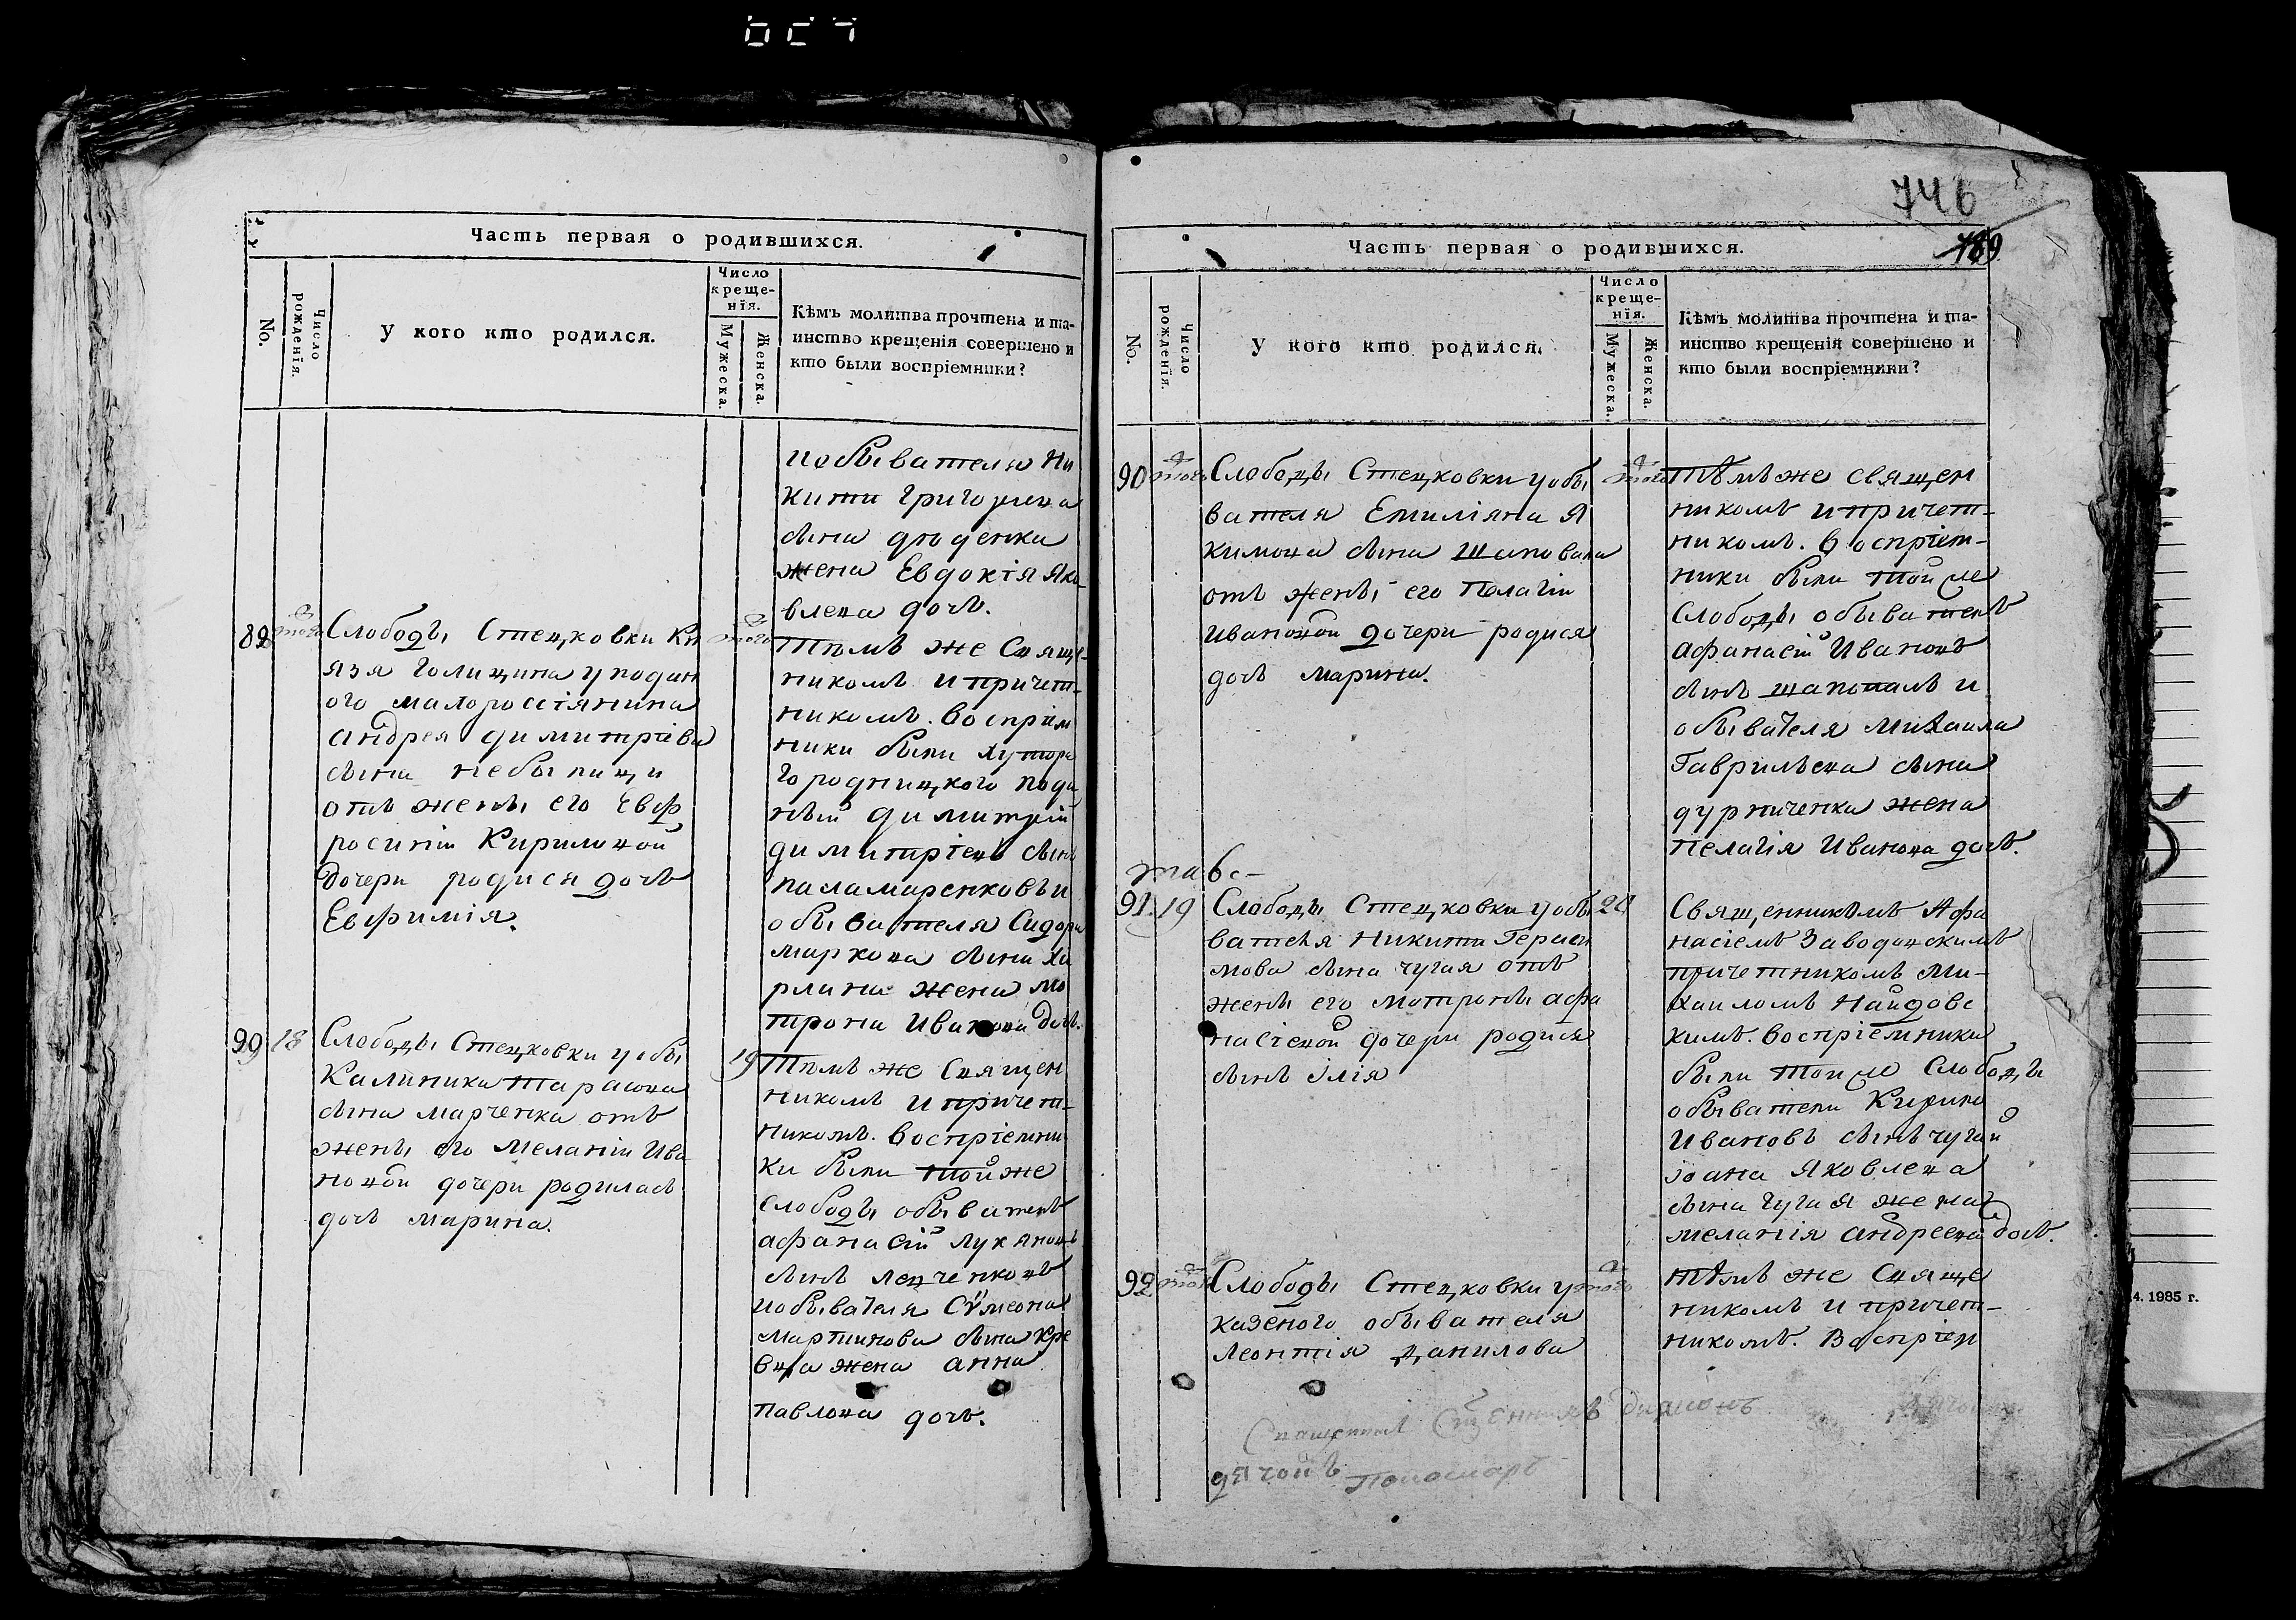 Часть первая о родившихся.
No.
Число рожденія.
У кого кто родился.
Число креще-
нія.
Мужеска.
Женска.
Кѣмъ молитва прочтена и та-
инство крещенія совершено и
кто были воспріемники?
иобывателя Ни
кити Григориева
сына
жена Евдокія Яко
влева дочь.
89 того Слободы Стецковки Кн
язя Голицина уподан
ого малороссіянина
андрея димитріева
сына небылици
отъ жены его Евф
росиніи Кириловой
дочери родися дочь
Евфимія.
того
Тѣмъ же Свяще-
никомъ и причет-
никомъ. Воспріем
ники были хутора
Городницкого пода
ный димитрій
димитріевъ сынъ
паламаренковъ и
обывателя Сидора
маркова сына
рлина жена мо
трона Иванова дочь.
90 18 Слободы Стецковки уобы
Калиника тарасова
сына марченка отъ
жены его Меланіи Ива
новой дочери родилась
дочь марина.
19
Тѣмъ же Священ
никомъ и причет-
никомъ. Воспріемни
ки были той же
слободы обыватель
афанасій Лукяновъ
сынъ левченковъ
иобывателя Сѵмеона
мартинова сына кре
вца жена анна
павлова дочь.
746
789
Часть первая о родившихся.
No.
Число рожденія.
У кого кто родился.
Число креще-
нія.
Мужеска.
Женска.
Кѣмъ молитва прочтена и та-
инство крещенія совершено и
кто были воспріемники?
90 того Слободы Стецковки уобы
вателя Емиліяна Я
кимова сына шаповала
отъ жены его Пелагіи
Ивановой дочери родися
дочь марина.
того
Тѣмъ же священ
никомъ и причет-
никомъ. Воспріем-
ники были той же
Слободы обыватель
афанасій Ивановъ
сынъ шаповалъ и
обывателя Михаила
Гаврилѣва сына
дурниченка жена
Пелагія Иванова дочь.
91. 19 Слободы Стецковки уобы
вателя Никити Гераси
мова сына чугая отъ
жены его мотроны афа
насіевой дочери родися
сынъ Ілія
24
Священникомъ Афа
насіемъ Заводовскимъ
причетникомъ Ми-
хаиломъ Найдовс
кимъ. воспріемники
были той же Слободы
обыватели Кирило
Ивановъ сынъ чугай
іоана Яковлева
сына чугая жена
меланія андреева дочь.
92 того Слободы Стецковки у
казеного обывателя
Леонтія Данилова
того
Тѣмъ же Свяще
никомъ и причет-
никомъ. Воспріем
дячокъ Пономарь
4. 1985 г.